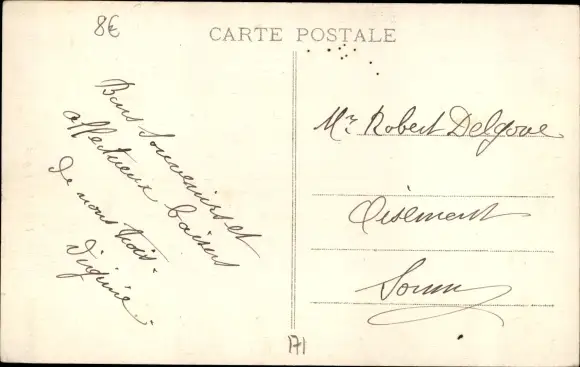 8€
CARTE POSTALE
Bons souvenirs et
affectueux baisers
de nous trois.
Virginie.
Mr. Robert Delgove
Oisement
Somme
171